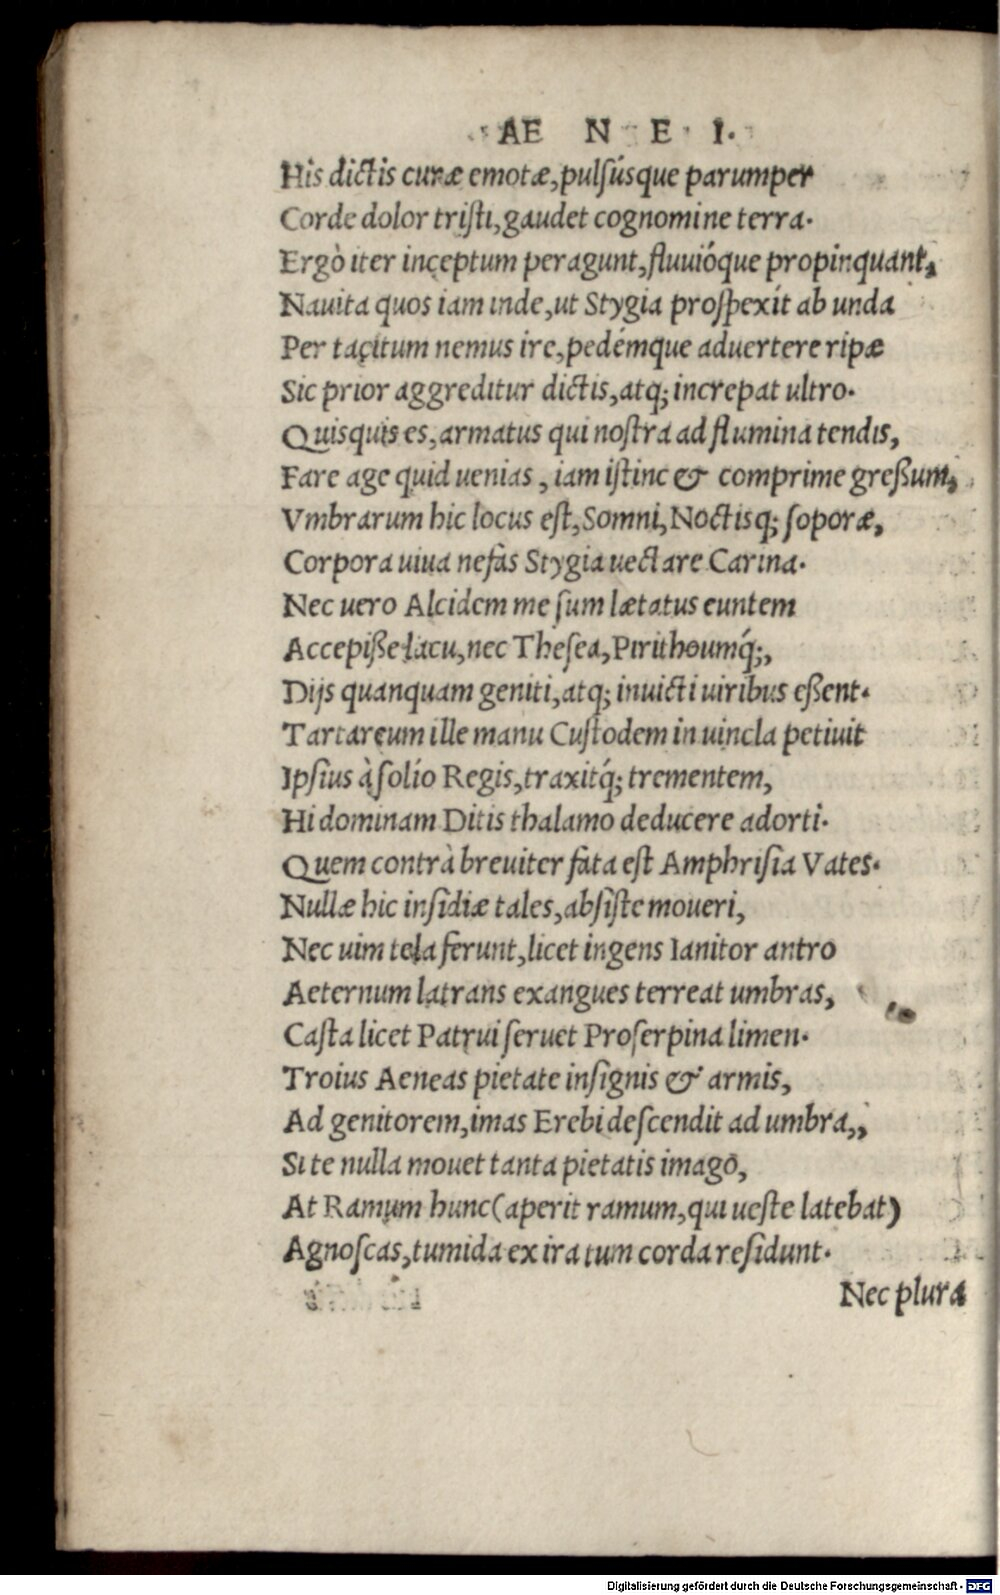 AE N E I.
His dictis curæ emotæ, pulsúsque parumper
Corde dolor tristi, gaudet cognomine terra.
Ergò iter inceptum peragunt, fluuióque propinquant,
Nauita quos iam inde, ut Stygia prospexit ab unda
Per tacitum nemus ire, pedémque aduertere ripæ
Sic prior aggreditur dictis, atq; increpat ultro.
Quisquis es, armatus qui nostra ad flumina tendis,
Fare age quid uenias, iam istinc & comprime greßum,
Vmbrarum hic locus est, Somni, Noctisq; soporæ,
Corpora uiua nefas Stygia uectare Carina.
Nec uero Alcidem me sum lætatus euntem
Accepiße lacu, nec Thesea, Pirithoumq́;,
Dijs quanquam geniti, atq; inuicti uiribus eßent.
Tartareum ille manu Custodem in uincla petiuit
Ipsius à solio Regis, traxitq́; trementem,
Hi dominam Ditis thalamo deducere adorti.
Quem contrà breuiter fata est Amphrisia Vates.
Nullæ hic insidiæ tales, absiste moueri,
Nec uim tela ferunt, licet ingens Ianitor antro
Aeternum latrans exangues terreat umbras,
Casta licet Patrui seruet Proserpina limen.
Troius Aeneas pietate insignis & armis,
Ad genitorem, imas Erebi descendit ad umbra,,
Si te nulla mouet tanta pietatis imago,
At Ramum hunc (aperit ramum, qui ueste latebat)
Agnoscas, tumida ex ira tum corda residunt.
Nec plura
Digitalisierung gefördert durch die Deutsche Forschungsgemeinschaft - DFG